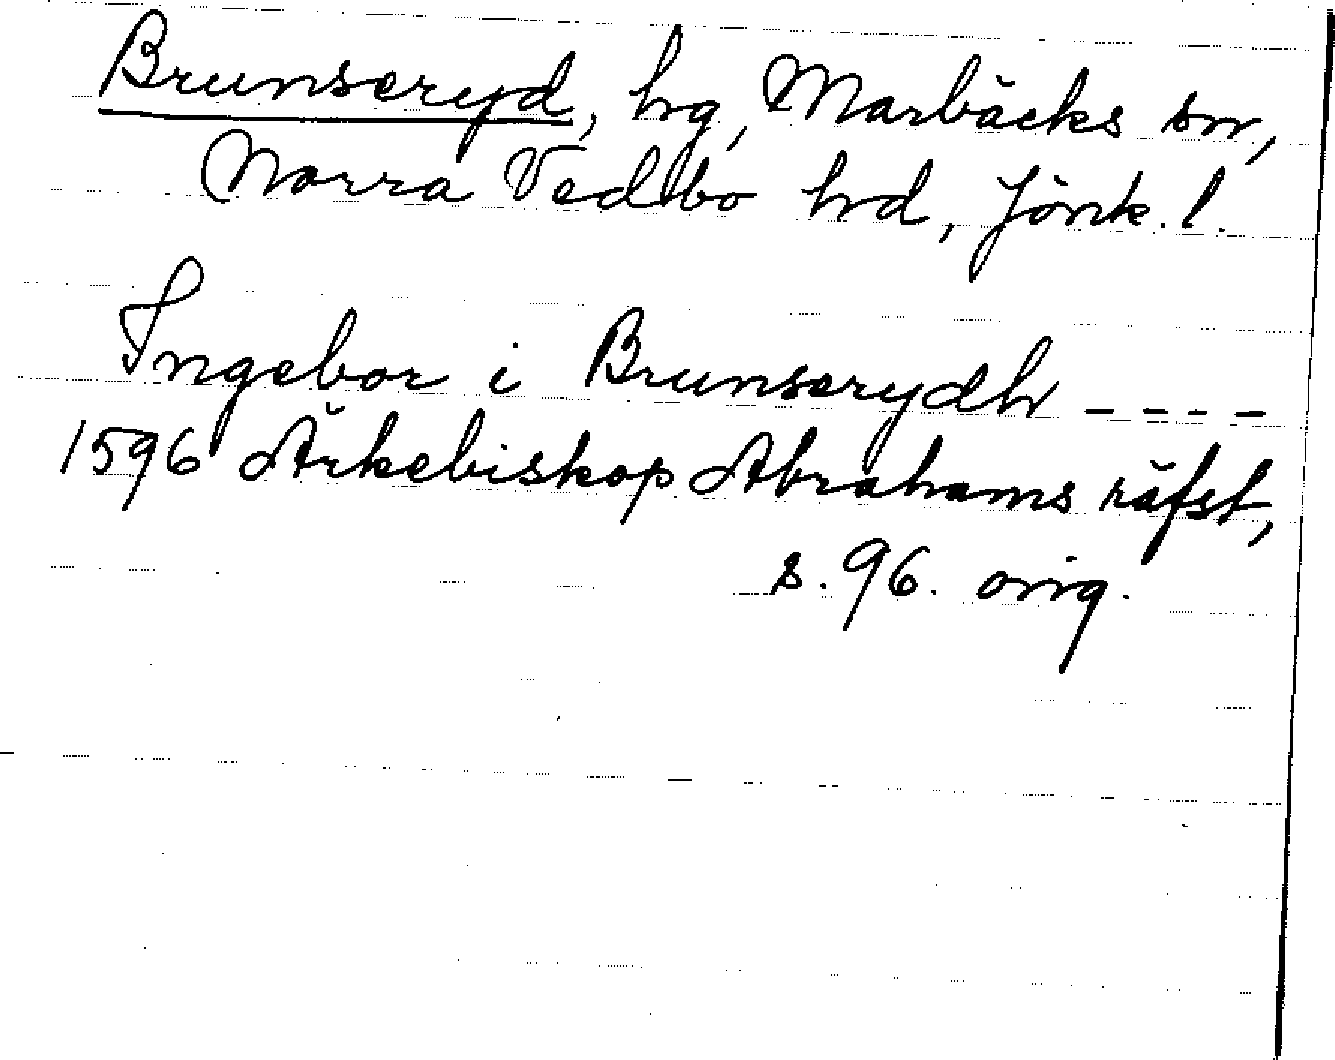 Brunseryd, hg, Marbäcks sn,
Norra Vedbo hrd, Jönk. l.
Ingebor i Brunserydh ----
1596 Ärkebiskop Abrahams räfst,
s. 96. orig.